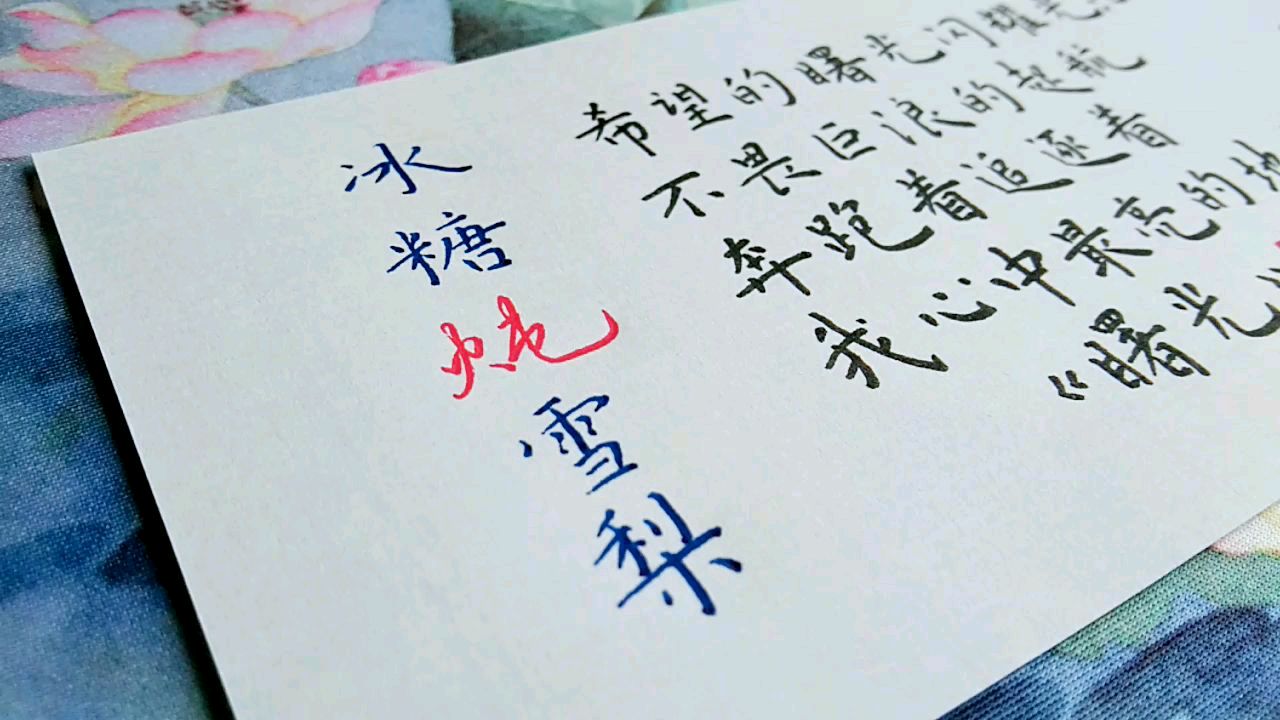 冰糖炖雪梨
希望的曙光闪耀光
不畏巨浪的起航
奔跑着追逐着
我心中最亮的地
《曙光